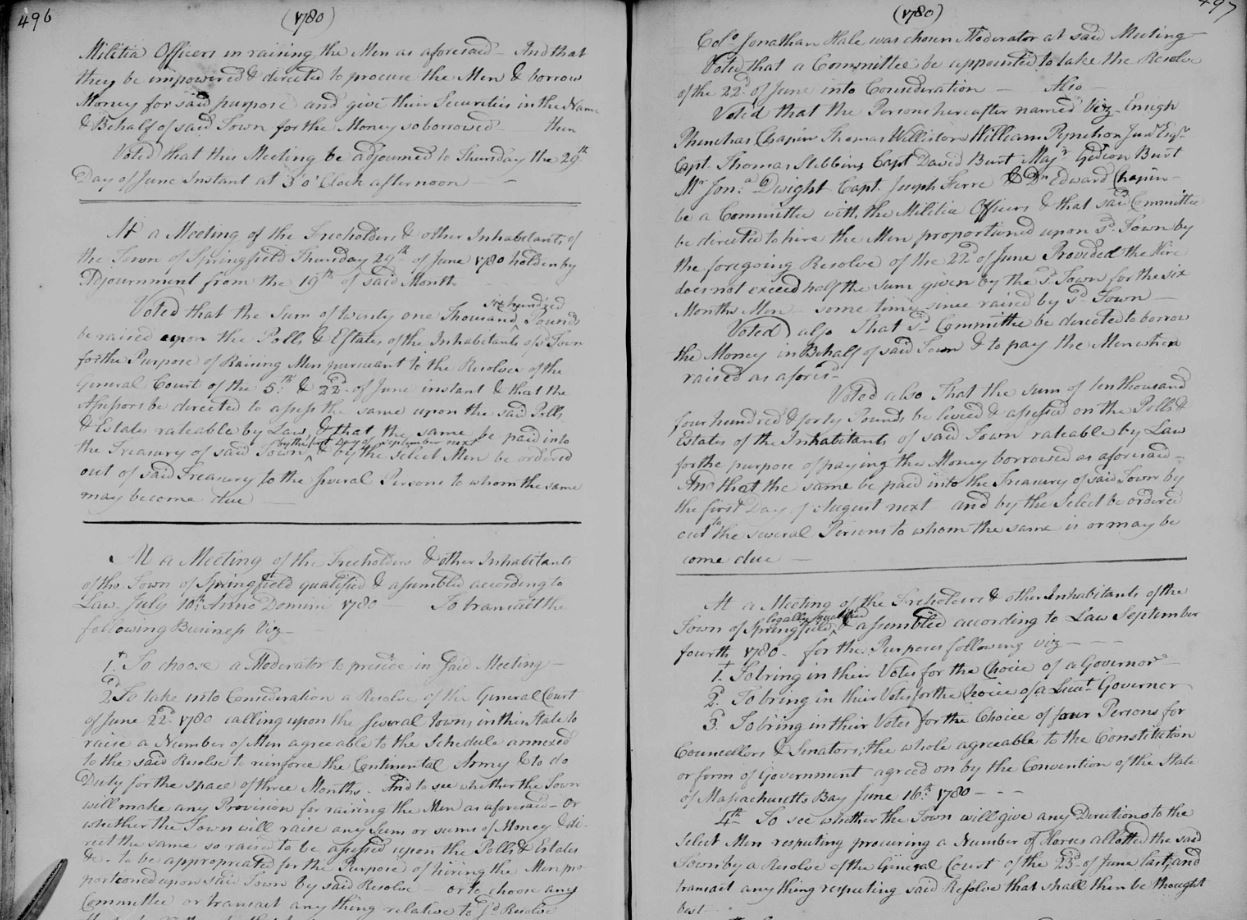 496
(1780)
Militia Officers in raising the Men as aforesaid - And that
they be impowered & directed to procure the Men & borrow
Money for said purpose and give their Securities in the Name
& Behalf of said Town for the Money so borrowed - then
Voted that this Meeting be adjourned to Thursday the 29th
Day of June Instant at 3 o'Clock afternoon -
At a Meeting of the Freeholders & other Inhabitants of
the Town of Springfield Thursday 29th of June 1780 holden by
Adjournment from the 19th of said Month
Voted that the Sum of twenty one Thousand six hundred Pounds
be raised upon the Polls & Estates of the Inhabitants of sd Town
for the Purpose of Raising Men pursuant to the Resolves of the
General Court of the 5th & 22d of June instant & that the
Assessors be directed to assess the same upon the said Polls
& Estates rateable by Law, & that the same be paid into
the Treasury of said Town by the first Day of September next & by the Select Men be ordered
out of said Treasury to the several Persons to whom the same
may become due
At a Meeting of the Freeholders & other Inhabitants
of the Town of Springfield qualified & assembled according to
Law July 10th Anno Domini 1780 - To transact the
following Business Viz -
1st To choose a Moderator to preside in said Meeting -
2d To take into Consideration a Resolve of the General Court
of June 22d 1780 calling upon the several towns in this State to
raise a Number of Men agreable to the Schedule annexed
to the said Resolve to reinforce the Continental Army & to do
Duty for the space of three Months. And to see whether the Town
will make any Provision for raising the Men as aforesaid - Or
whether the Town will raise any Sum or sums of Money & di-
rect the same so raised to be assessed upon the Polls & Estates
&c. to be appropriated for the Purpose of hiring the Men pro
portioned upon said Town by said Resolve - or to choose any
Committee or transact any thing relative to sd Resolve
497
(1780)
Colo Jonathan Hale was chosen Moderator at said Meeting
Voted that a Committee be appointed to take the Resolve
of the 22d of June into Consideration - Also -
Voted that the Persons hereafter named Viz - Ensign
Phinehas Chapin Thomas Williston William Pynchon Junr Esqr
Capt. Thomas Stebbins Capt David Burt Majr Gideon Burt
Mr Jona Dwight Capt. Joseph Ferre & Dn Edward Chapin -
be a Committee with the Militia Officers & that said Committee
be directed to hire the Men proportioned upon sd Town by
the foregoing Resolve of the 22d of June Provided the Hire
does not exceed half the Sum given by the sd Town for the six
Months Men some time since raised by sd Town -
Voted also That sd Committee be directed to borrow
the Money in Behalf of said Town & to pay the Men when
raised as aforesd -
Voted also That the Sum of ten thousand
four hundred & forty Pounds be levied & assessed on the Polls &
Estates of the Inhabitants of said Town rateable by Law
for the purpose of paying the Money borrowed as aforesaid -
And that the same be paid into the Treasury of said Town by
the first Day of August next and by the Select be ordered
out to the several Persons to whom the same is or may be
come due -
At a Meeting of the Freeholders & other Inhabitants of the
Town of Springfield legally qualified & assembled according to Law September
fourth 1780 - for the Purposes following viz -
1st To bring in their Votes for the Choice of a Governor
2d. To bring in their Votes for the Choice of a Lieut. Governor
3d. To bring in their Votes for the Choice of four Persons for
Councellors & Senators, the whole agreable to the Constitution
or form of Government agreed on by the Convention of the State
of Massachusetts Bay June 16th 1780 - - -
4th To see whether the Town will give any Directions to the
Select Men respecting procuring a Number of Horses allotted the said
Town by a Resolve of the General Court of the 23d of June last, and
transact any thing respecting said Resolve that shall then be thought
best